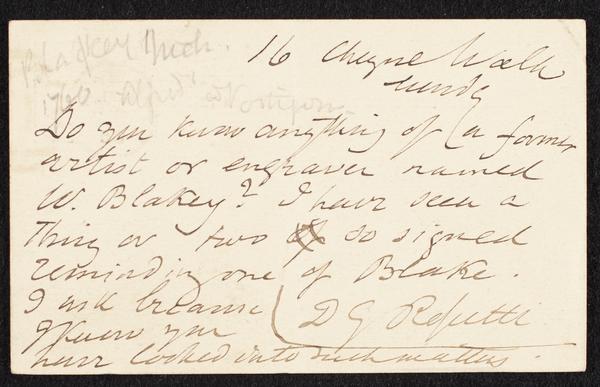 16 Cheyne Walk
Sunday
Do you know anything of a former
artist or engraver named
W. Blakey? I have seen a
thing or two so signed
reminding one of Blake.
I ask because
I know you
have looked into such matters.
D G Rossetti
1760